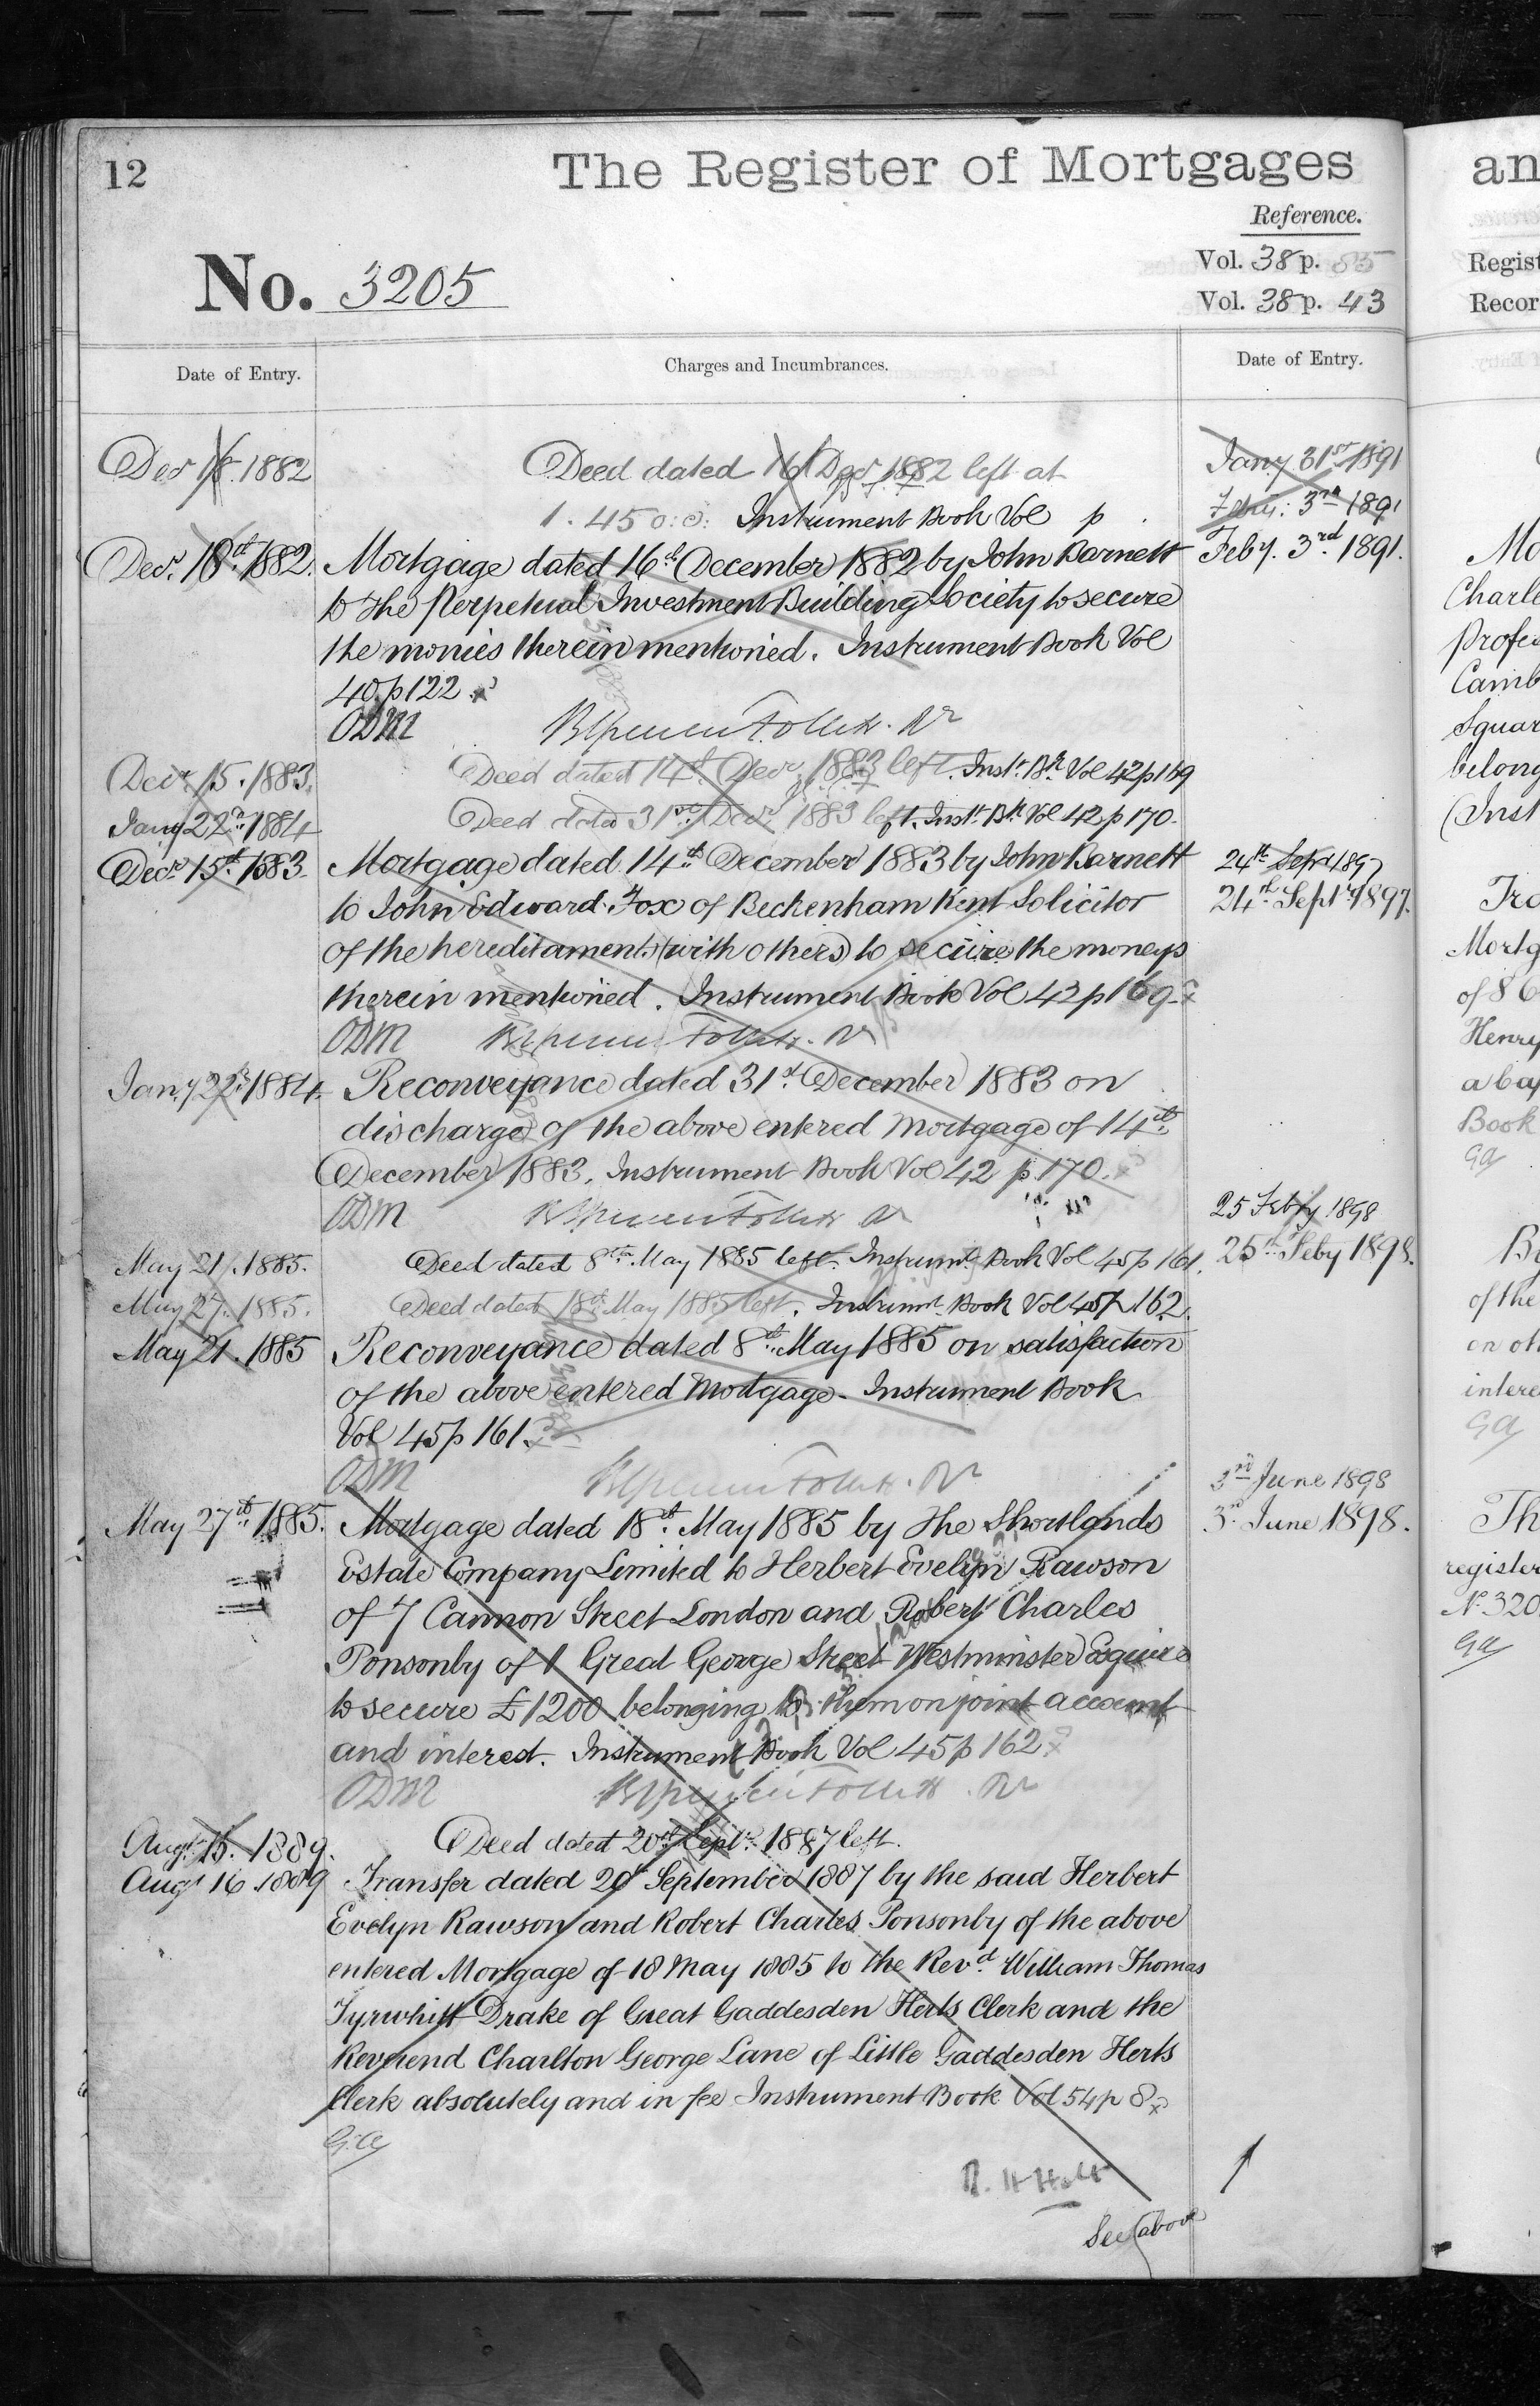 12
The Register of Mortgages
Reference.
Vol. 38 p. 85
Vol. 38 p. 43
No. 3205
Date of Entry.
Charges and Incumbrances.
Date of Entry.
Decr 18. 1882
Deed dated 16 Decr 1882 left at
1.45 o.c: Instrument Book Vol p
Decr. 18th 1882.
Mortgage dated 16th December 1882 by John Barnett
to the Perpetual Investment Building Society to secure
the monies therein mentioned. Instrument Book Vol
40 p 122
ODM
Decr 15. 1883.
Deed dated 14th Decr 1883 left. Inst. Bk Vol 42 p 169
Jany 22nd 1884
Deed dated 31st Decr 1883 left. Inst. Bk Vol 42 p 170
Decr 15th 1883.
Mortgage dated 14th December 1883 by John Barnett
to John Edward Fox of Beckenham Kent Solicitor
of the hereditaments (with others) to secure the moneys
therein mentioned. Instrument Book Vol 42 p 169
ODM
Jany 22nd 1884.
Reconveyance dated 31st December 1883 on
discharge of the above entered Mortgage of 14th
December 1883. Instrument Book Vol 42 p 170.
ODM
May 21. 1885.
Deed dated 8th May 1885 left. Instrumt Book Vol 45 p 161.
May 27. 1885.
Deed dated 18th May 1885 left. Instrumt Book Vol 45 p 162.
May 21. 1885
Reconveyance dated 8th May 1885 on satisfaction
of the above entered Mortgage. Instrument Book
Vol 45 p 161.
ODM
May 27th 1885.
Mortgage dated 18th May 1885 by The Shortlands
Estate Company Limited to Herbert Evelyn Rawson
of 7 Cannon Street London and Robert Charles
Ponsonby of 1 Great George Street Westminster Esquire
to secure £1200 belonging to them on joint account
and interest. Instrument Book Vol 45 p 162
ODM
Augt 15. 1889.
Deed dated 20th Septr 1887 left.
Augt 16 1889
Transfer dated 20 September 1887 by the said Herbert
Evelyn Rawson and Robert Charles Ponsonby of the above
entered Mortgage of 18 May 1885 to the Revd. William Thomas
Tyrwhitt Drake of Great Gaddesden Herts Clerk and the
Reverend Charlton George Lane of Little Gaddesden Herts
Clerk absolutely and in fee Instrument Book Vol 54 p 8
See above
Jany 31st 1891
Feby: 3rd 1891
Feby. 3rd 1891.
24th Septr 1897
24th Septr 1897.
25 Feby 1898
25th Feby 1898.
3rd June 1898
3rd June 1898.
an
Regist
Recor
Mo
Charle
Profes
Camb
Squar
belong
(Inst
Tra
Mortg
of 86
Henry
a cap
Book
By
of the
on oth
intere
Th
register
No 320